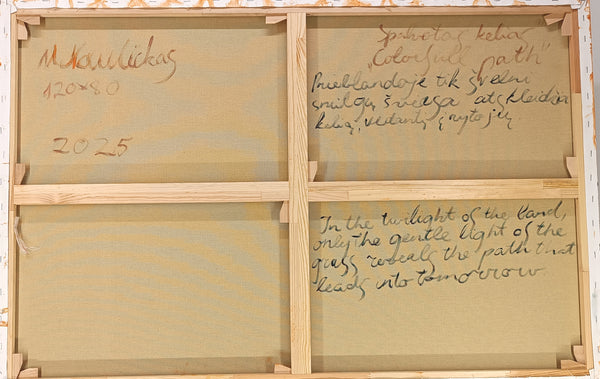 M. Kaulickas
120×80
2025
Spalvotas kelias
"Colorfull path"
Prieblandoje tik švelni
smilgų šviesa atskleidžia
kelią, vedantį į rytojų.
In the twilight of the land,
only the gentle light of the
grass reveals the path that
leads into tomorrow.